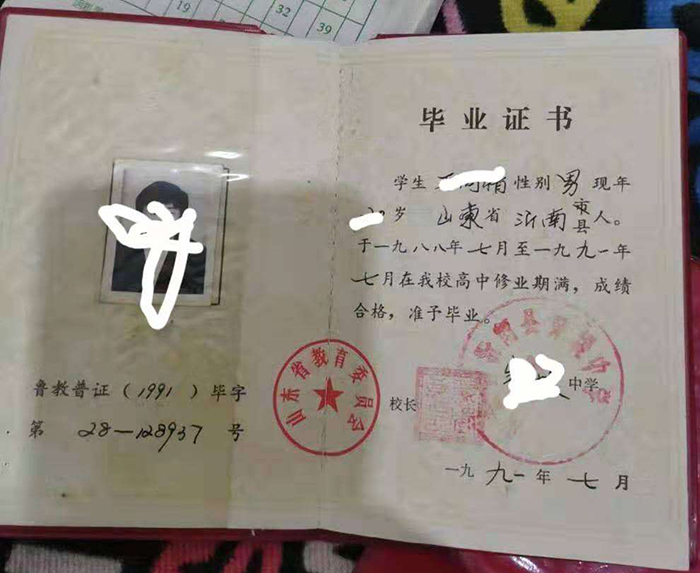 19
32
39
毕业证书
学生 性别男现年
岁 山东省沂南市县人。
于一九八八年七月至一九九一年
七月在我校高中修业期满,成绩
合格,准予毕业。
中学
校长
一九九一年七月
鲁教普证(1991)毕字
第 28—128937 号
山东省教育委员会